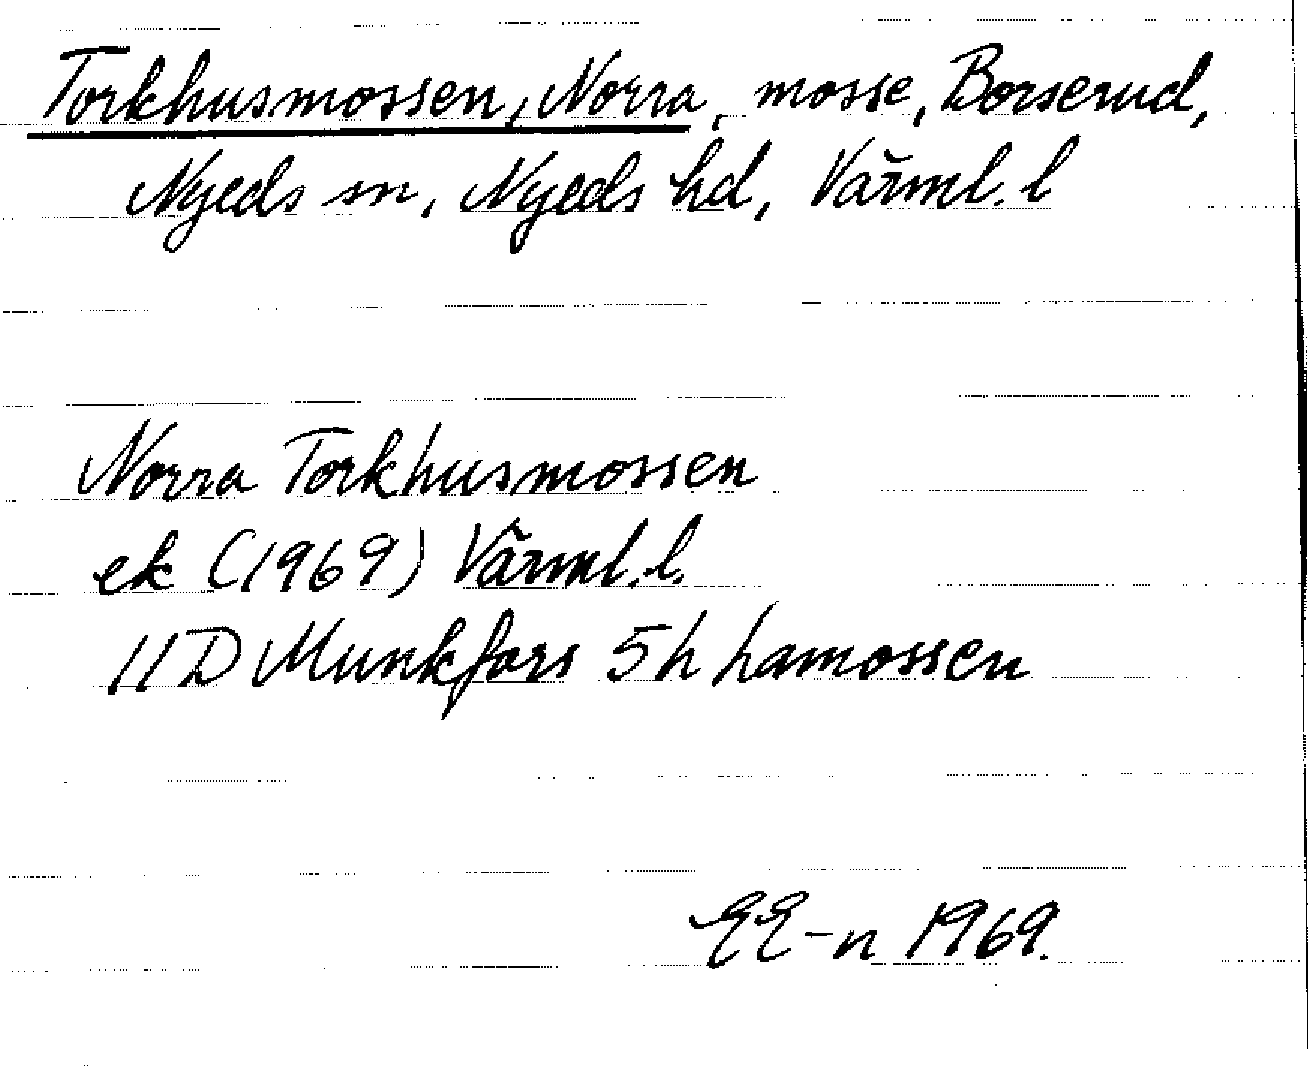 Torkhusmossen, Norra, mosse, Borserud,
Nyeds sn, Nyeds hd, Värml. l
Norra Torkhusmossen
ek (1969) Värml. l.
11D Munkfors 5h hamossen
EE-n 1969.